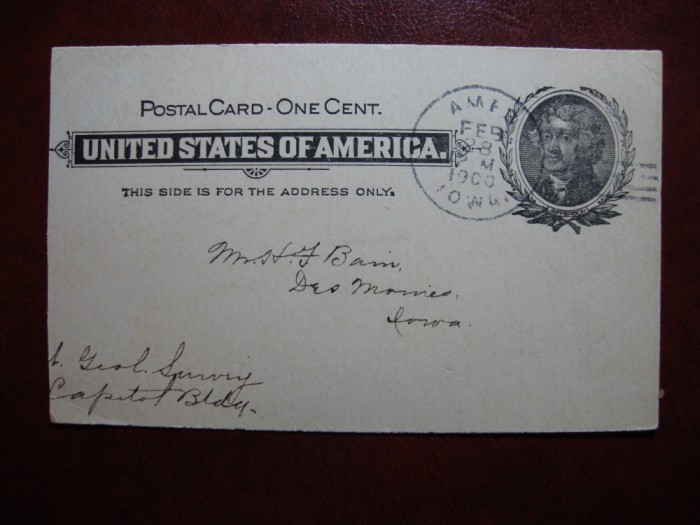 POSTAL CARD - ONE CENT.
UNITED STATES OF AMERICA.
THIS SIDE IS FOR THE ADDRESS ONLY.
FEB
28
M
1900
IOWA.
Mr. H. F. Bain,
Des Moines,
Iowa.
Geol. Survey
Capitol Bldg.